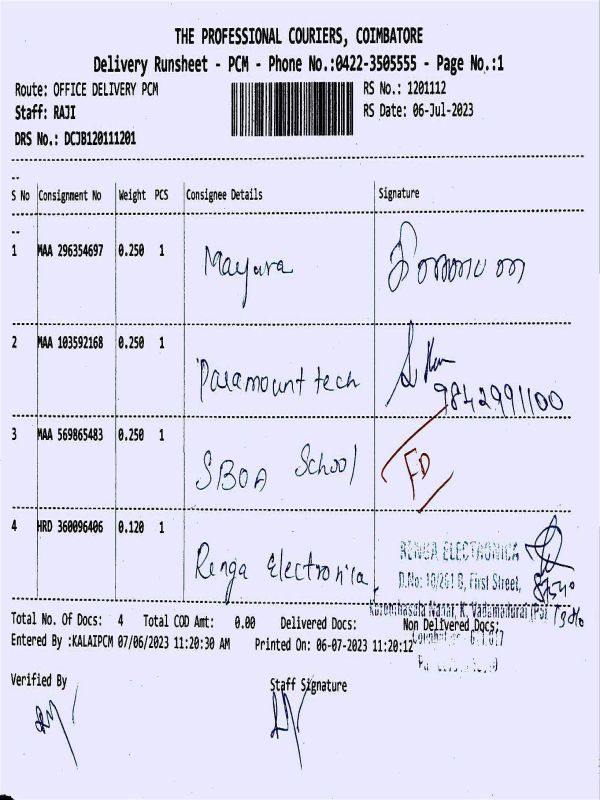 THE PROFESSIONAL COURIERS, COIMBATORE
Delivery Runsheet - PCM - Phone No.:0422-3505555 - Page No.:1
Route: OFFICE DELIVERY PCM RS No.: 1201112
Staff: RAJI RS Date: 06-Jul-2023
DRS No.: DCJB120111201
S No Consignment No Weight PCS Consignee Details Signature
1 MAA 296354697 0.250 1 Mayura
2 MAA 103592168 0.250 1 Paramount tech
9842991100
3 MAA 569865483 0.250 1 SBOA School FD
4 HRD 360096406 0.120 1 Renga Electronica
RENGA ELECTRONICA
D.No: 10/261 B, First Street,
Nagar, K. Vadamadurai (Po)
Total No. Of Docs: 4 Total COD Amt: 0.00 Delivered Docs: Non Delivered Docs:
Entered By :KALAIPCM 07/06/2023 11:20:30 AM Printed On: 06-07-2023 11:20:12
Verified By Staff Signature